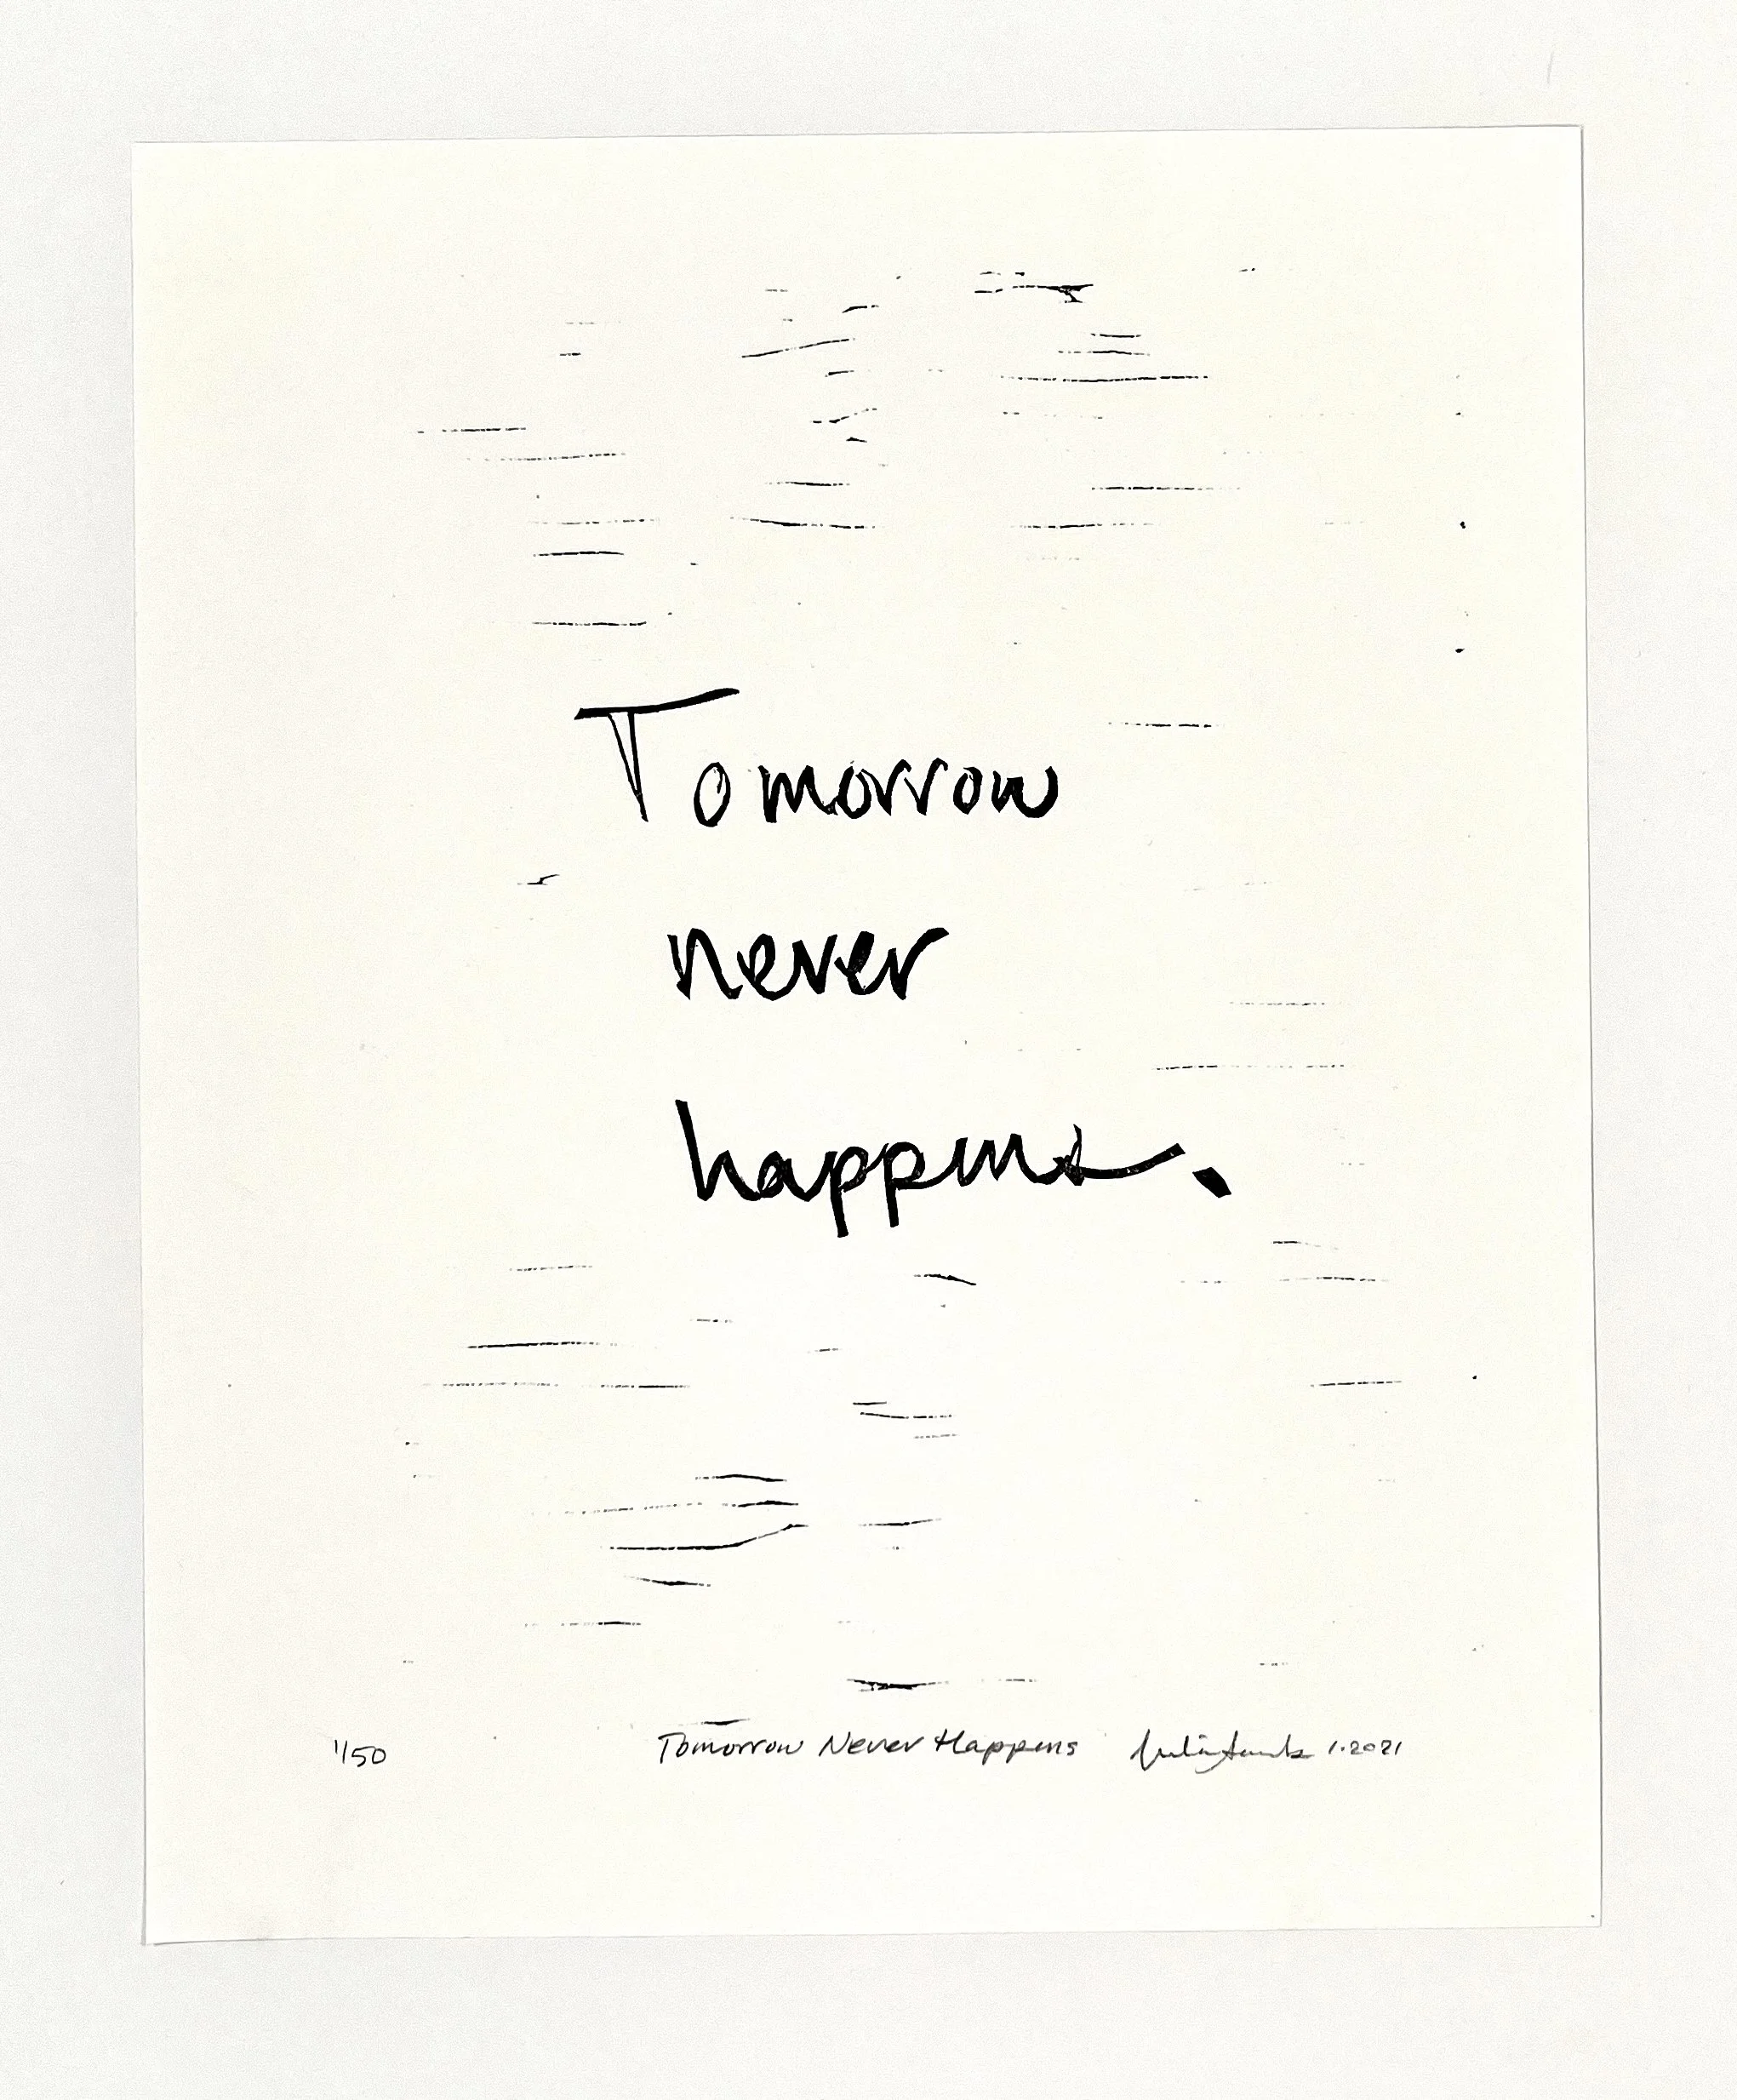 Tomorrow
never
happens.
1/50 Tomorrow Never Happens 1.2021